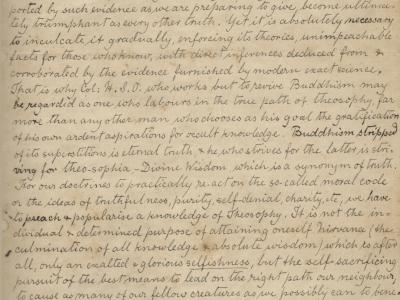 ported by such evidence as we are preparing to give, become ultima-
tely triumphant as every other truth. Yet it is absolutely necessary
to inculcate it gradually, enforcing its theories, unimpeachable
facts for those who know, with direct inferences deduced from &
corroborated by the evidence furnished by modern exact science.
That is why Col: H.S.O. who works but to revive Buddhism may
be regarded as one who labours in the true path of theosophy, far
more than any other man who chooses as his goal the gratification
of his own ardent aspirations for occult knowledge. Buddhism stripped
of its superstitions is eternal truth, & he, who strives for the latter is stri-
ving for Theo-sophia - Divine Wisdom which is a synonym of truth.
For our doctrines to practically re-act on the so-called moral code
or the ideas of truthfulness, purity, self-denial, charity, etc, we have
to preach & popularise a knowledge of Theosophy. It is not the in-
dividual & determined purpose of attaining oneself Nirvana (the
culmination of all knowledge & absolute wisdom) which is after
all, only an exalted & glorious selfishness, but the self-sacrificing
pursuit of the best means to lead on the right path our neighbour,
to cause as many of our fellow creatures as we possibly can to bene-